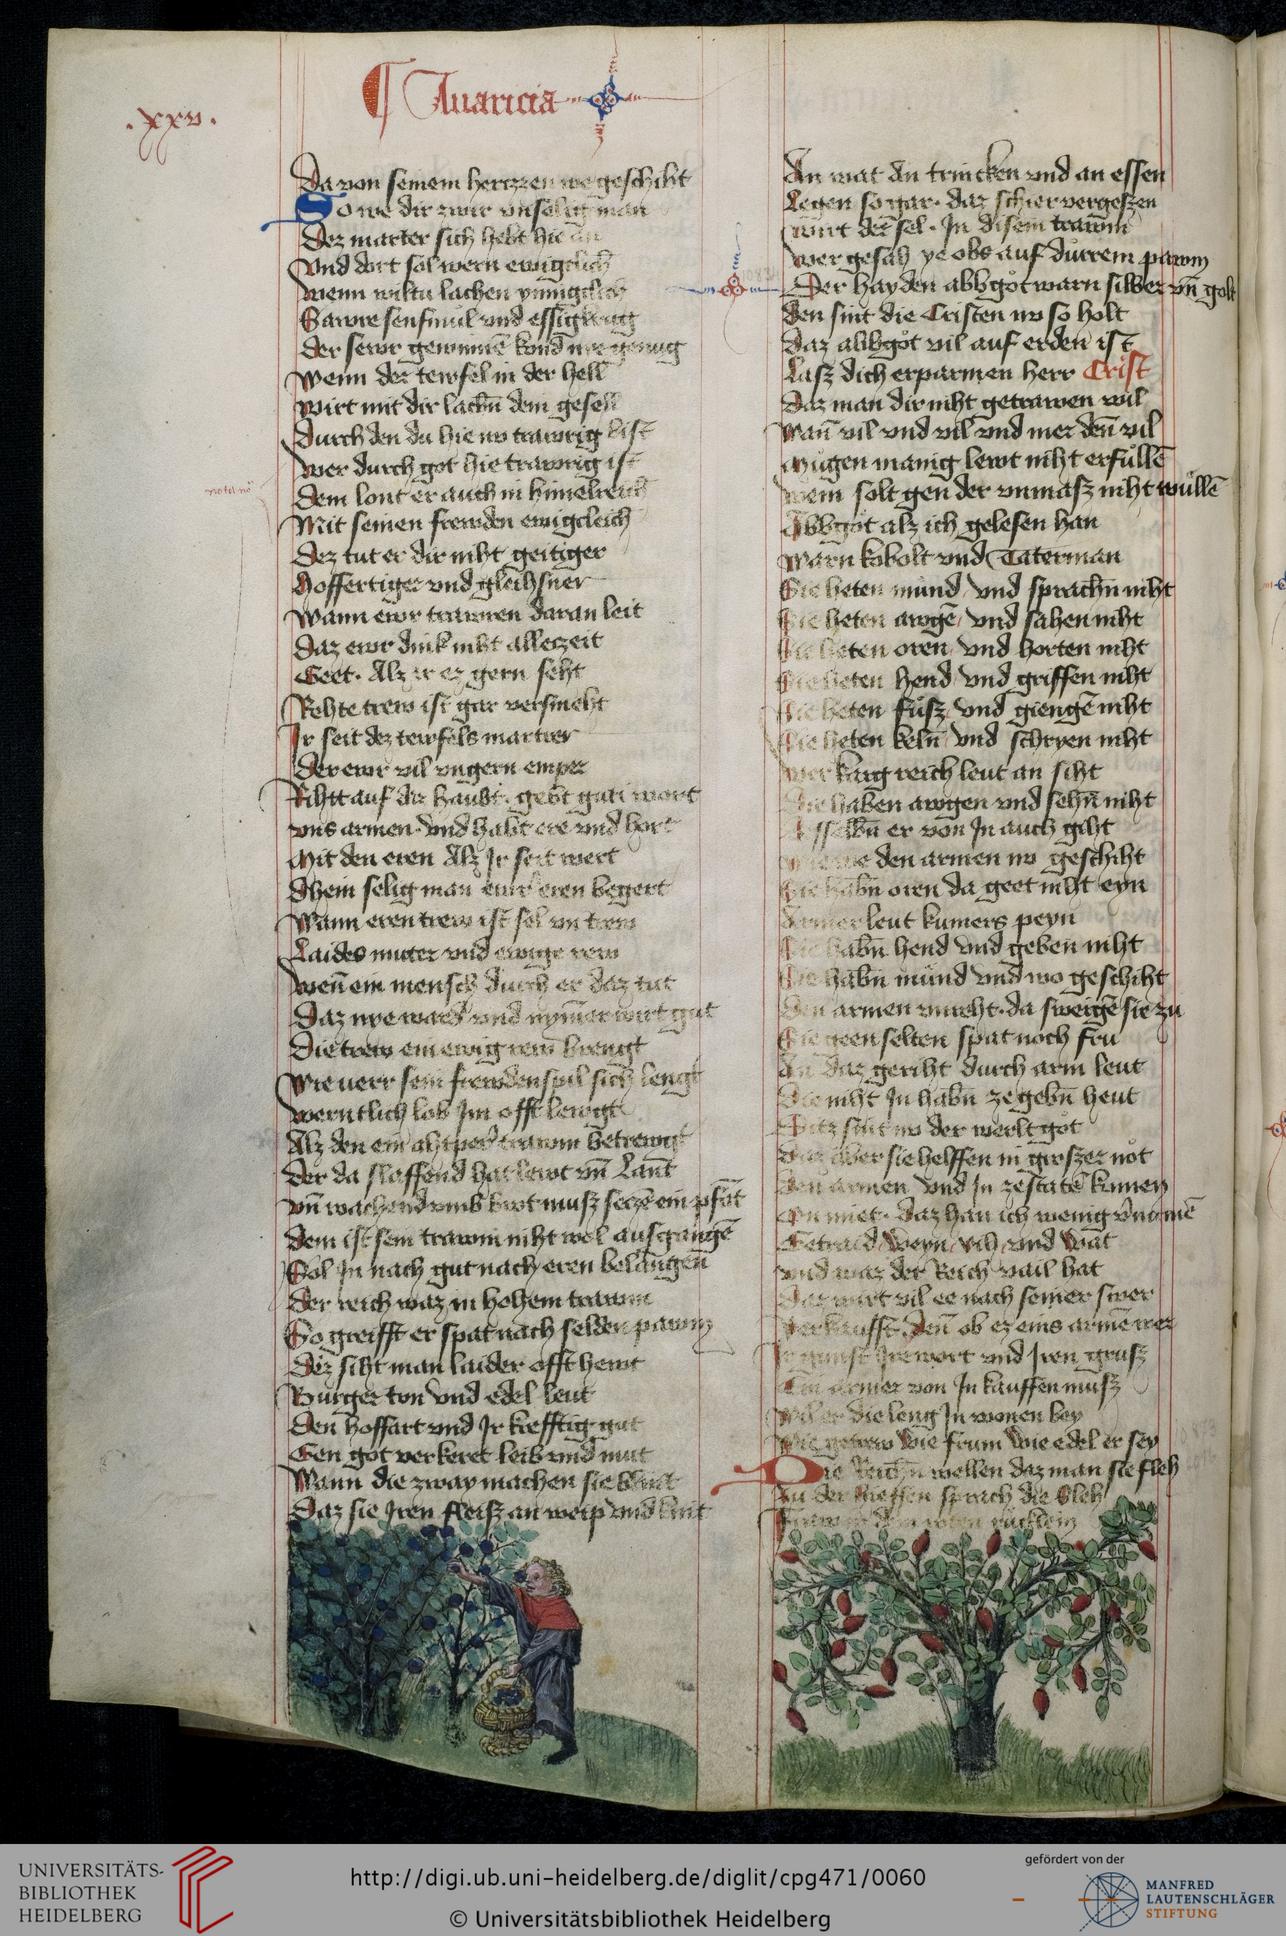 ¶ Auaricia
.xxv.
Da von seinem herczen we geschiht
So we dir zwir vnselig man
Dez marter sich hebt hie an
Vnd dort sol wern ewigclich
Wenn wiltu lachen ynnigclich
Sawre senf mul vnd essig krug
der sewr gewinnē kond nye genug
Wenn der tewfel in der hell
Wirt mit dir lachn̄ dem gesell
Durch den du hie no trawrig bist
Wer durch got hie trawrig ist
Dem lont er auch in himelreich
Mit seinen frewden ewigcleich
Dez tut er dir niht geitiger
Hoffertiger vnd gleihsner
Wann ewr trawren daran leit
Daz ewr dink niht alleczeit
Geet. Alz ir ez gern seht
Rehte trew ist gar versmeht
Ir seit dez tewfels martrer
Der ewr vil vngern emper
Rihtt auf die haubt. gebt guti wort
vns armen. vnd habt ere vnd hort
Mit den eren Alz Ir seit wert
Dhein selig man ewr eren begert
Wann eren trew ist sel vn trew
Laides muter vnd ewige rew
wen̄ ein mensch durch er daz tut
Daz nye ward vnd nym̄er wirt gut
Die trew ein ewig rew brengt
Wie uerr sein frewden spil sich lengt
werntlich lob Im offt lewgt
Alz den ein ahtper trawm betrewgt
Der da slaffend hat lewt vn̄ lant
vn̄ wachend vmb brot musz seczē ein pfāt
dem ist sein trawm niht wol ausgangē
Sol In nach gut nach eren belangen
Der reich waz in hohem trawm
So greifft er spat nach selden pawm
Dez siht man laider offt hewt
Burger ton vnd edel leut
Den hoffart vnd Ir krefftig gut
Gen got verkeret leib vnd mut
Wann die zway machen sie blint
Daz sie Iren fleisz an weip vnd kint
An wat an trincken vnd an essen
Legen so gar. daz schier vergeszen
wirt der sel. In disem trawm
wer gesah ye obs auf durrem pawm
Der hayden abbgot warn silber vn̄ golt
den sint die Cristen no so holt
Daz abbgot vil auf erden ist
Lasz dich erparmen herr Crist
Daz man dir niht getrawen wil
Wan̄ vil vnd vil vnd mer den̄ vil
Mugen manig lewt niht erfullē
wem solt gen der vnmasz niht wullē
Abbgot alz ich gelesen han
Warn kobolt vnd Taterman
Sie heten mund vnd sprachn̄ niht
Sie heten awgē vnd sahen niht
Sie heten oren vnd horten niht
Sie heten hend vnd griffen niht
Sie heten fusz vnd giengē niht
Sie heten keln̄ vnd schryen niht
wer karg reich leut an siht
Die haben awgen vnd sehn̄ niht
er von In auch giht
we den armen no geschiht
Sie habn̄ oren da geet niht eyn
Armer leut kumers peyn
Sie habn̄ hend vnd geben niht
Sie habn̄ mund vnd wo geschiht
Den armen vnreht. da sweigē sie zu
Sie geen selten spat noch fru
An daz geriht durch arm leut
Die niht In habn̄ ze gebn̄ heut
Ditz sint no der werlt got
Daz aber sie helffen in groszer not
Den armen vnd In ze statē kumen
On miet. daz han ich wenig v̄nomē
Getraid weyn vih vnd wat
vnd waz der Reich vail hat
Daz wirt vil ee nach seiner swer
Verkaufft. Den̄ ob ez eins armē wer
Ir gunst Ire wort vnd Iren grusz
Ein armer von In kauffen musz
Wil er die leng In wonen bey
Wie getrew wie frum wie edel er sey
Die Reichn̄ wellen daz man sie fleh
Zu der sprach die Sleh
UNIVERSITÄTS-
BIBLIOTHEK
HEIDELBERG
http://digi.ub.uni-heidelberg.de/diglit/cpg471/0060
© Universitätsbibliothek Heidelberg
gefördert von der
MANFRED
LAUTENSCHLÄGER
STIFTUNG